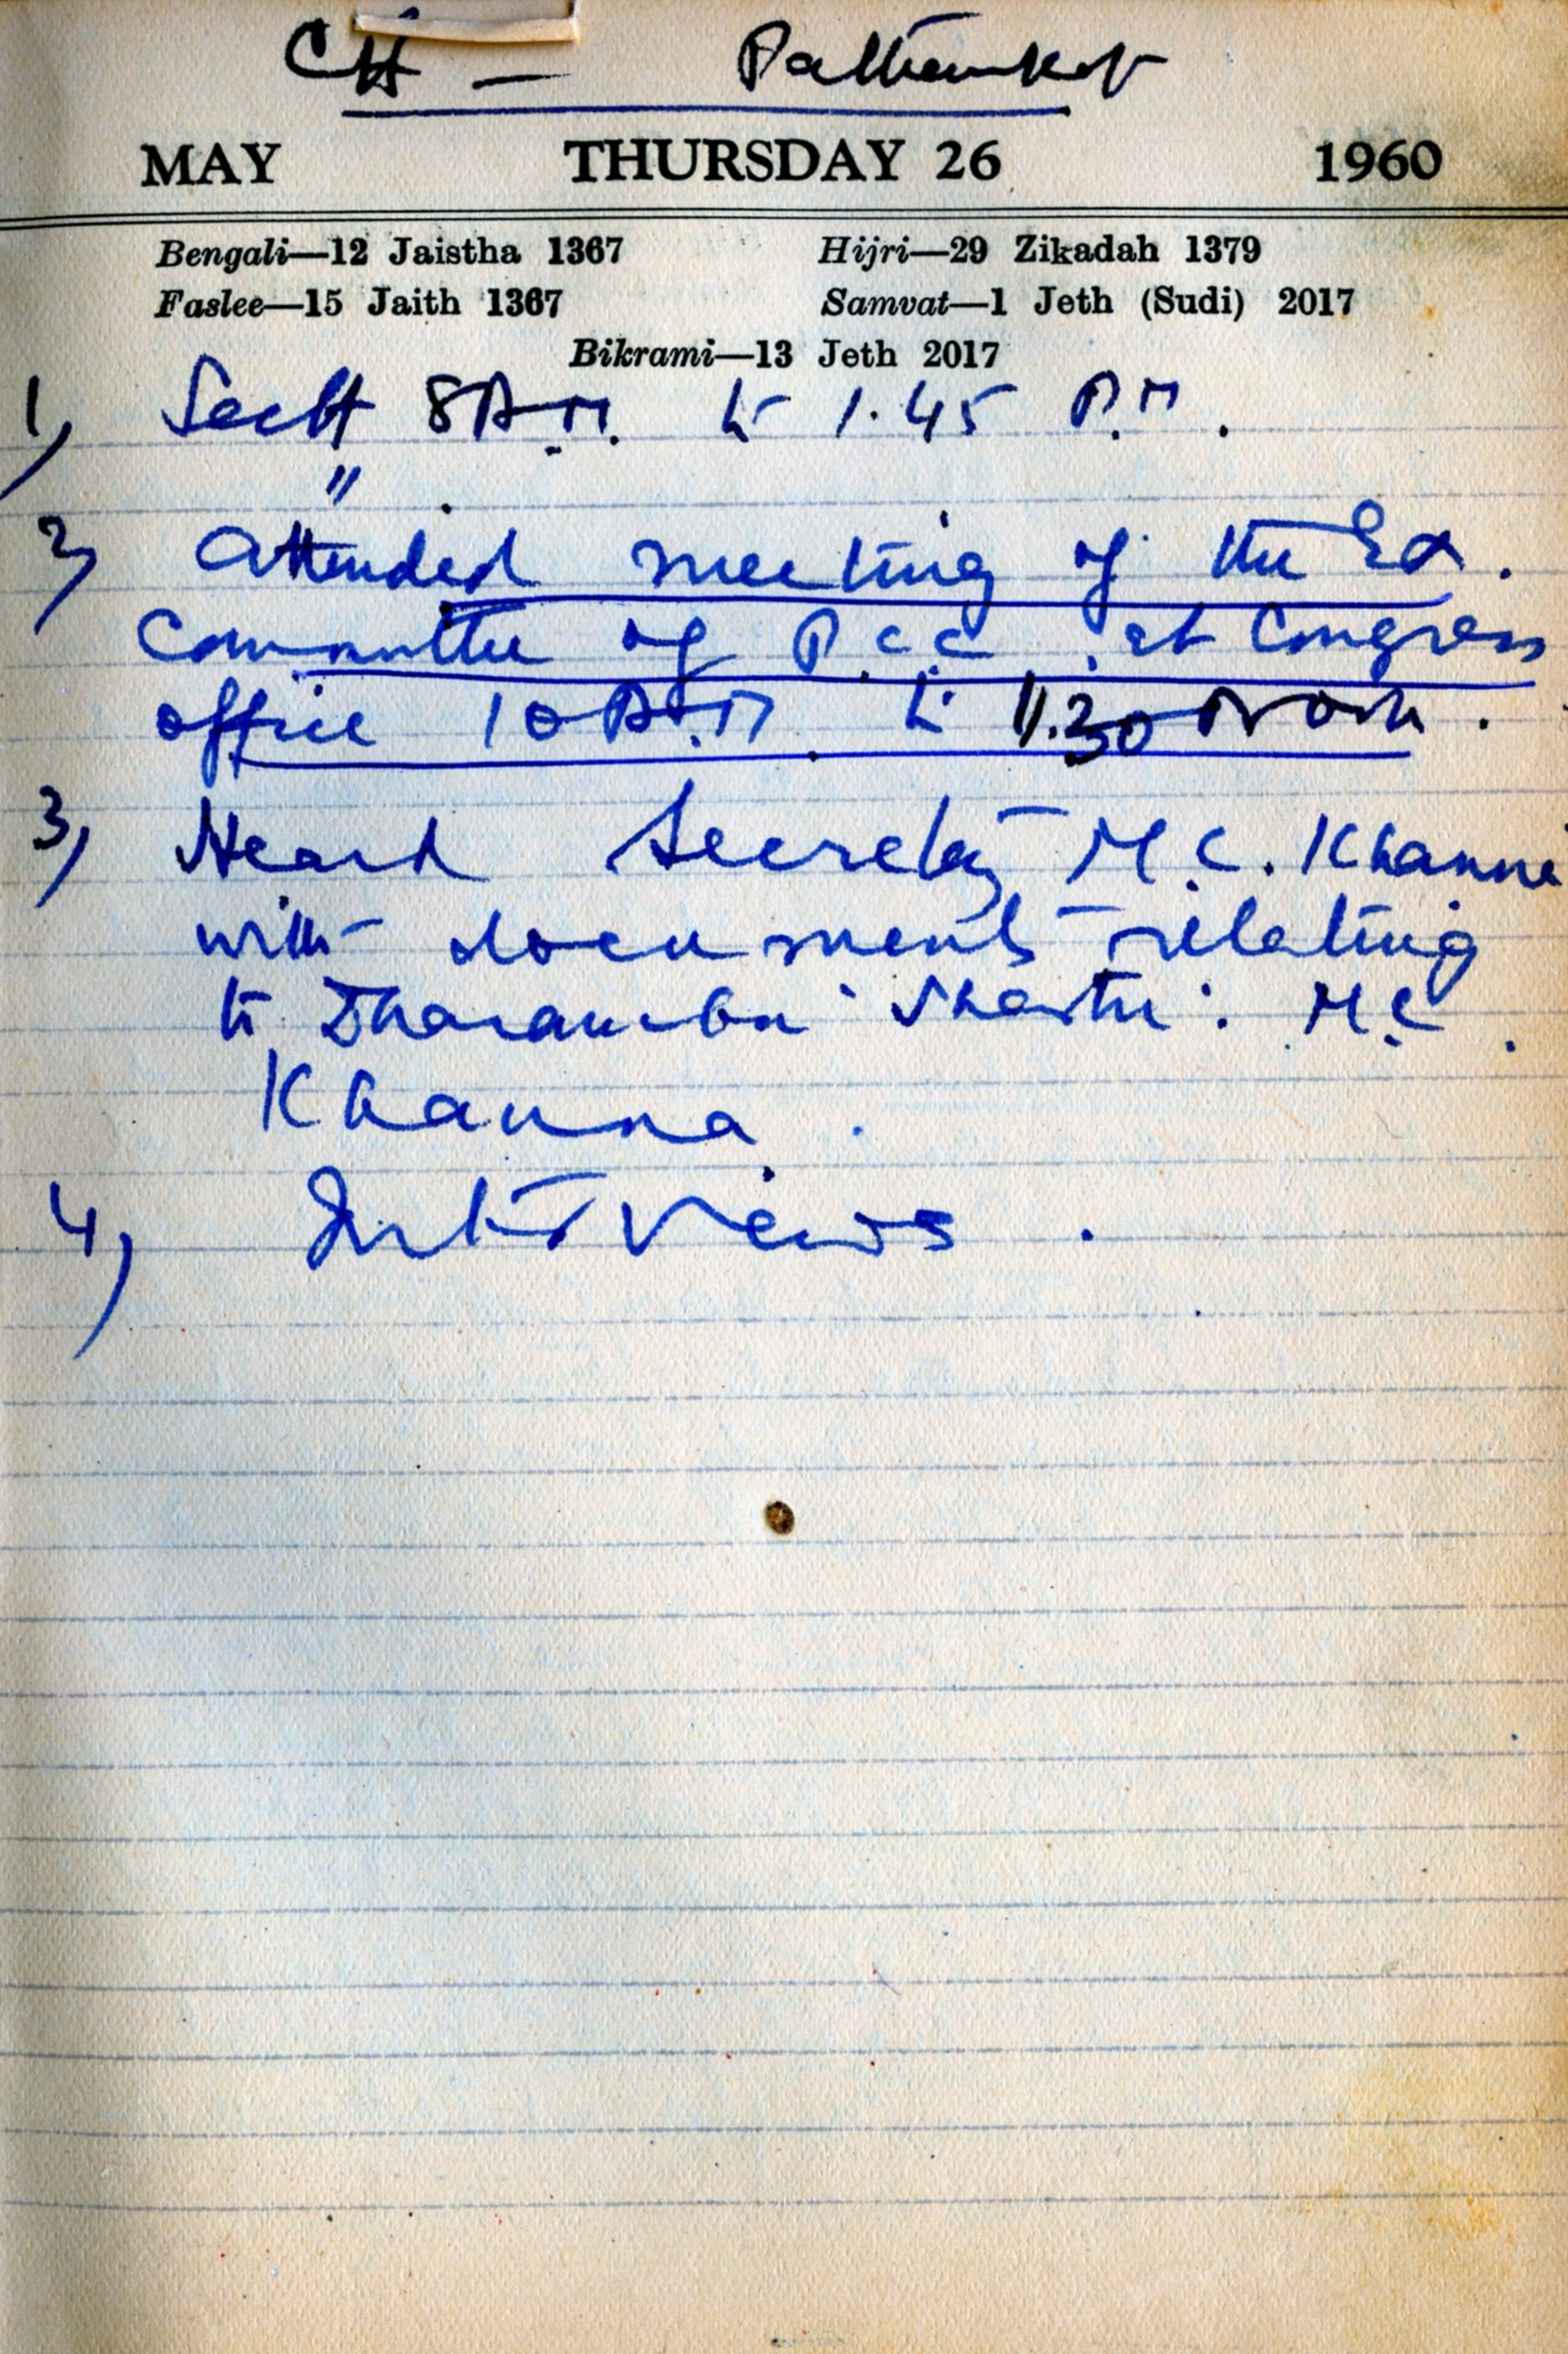 CH — Pathankot
MAY THURSDAY 26 1960
Bengali—12 Jaistha 1367 Hijri—29 Zikadah 1379
Faslee—15 Jaith 1367 Samvat—1 Jeth (Sudi) 2017
Bikrami—13 Jeth 2017
1) Sectt 8 A.M. to 1.45 P.M.
"
2) Attended meeting of the Ex.
Committee of P.C.C. at Congress
office 10 A.M. to 11.30 Noon.
3) Heard Secretary M.C. Khanna
with documents relating
to Shastri. M.C.
Khanna.
4) Interviews.